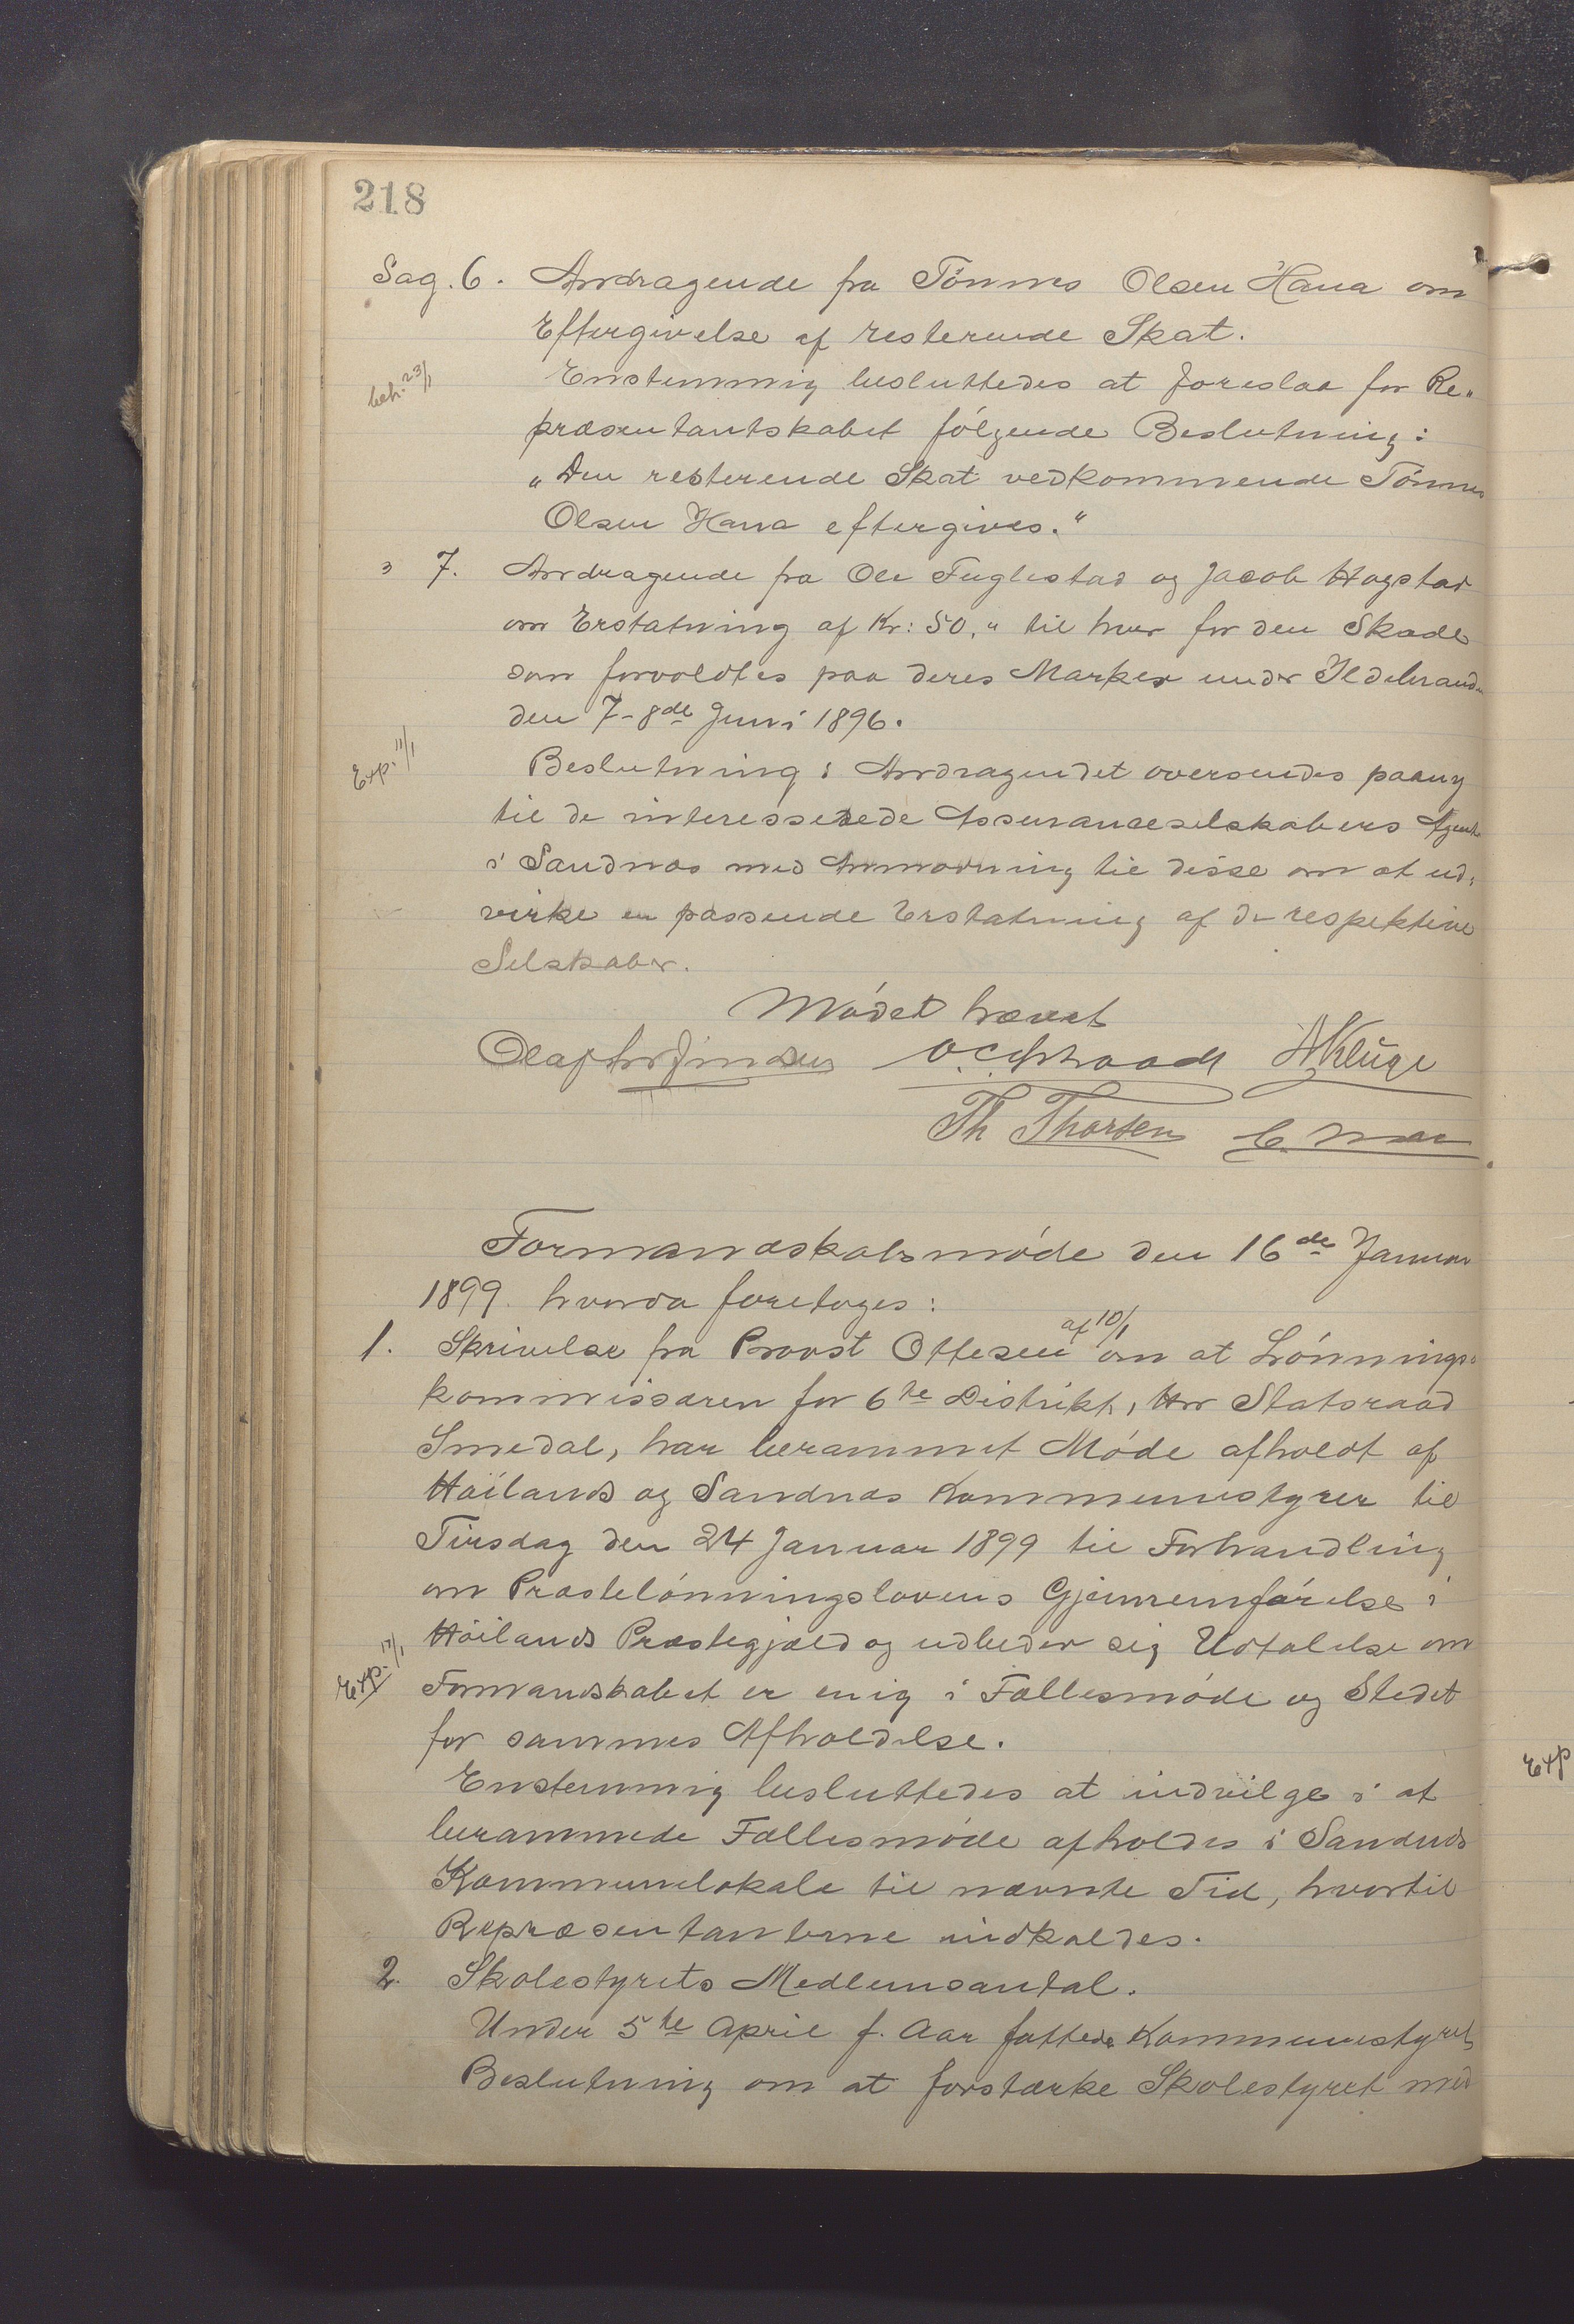 218
Sag. 6. Andragende fra Tönnes Olsen Hana om
Eftergivelse af resterende Skat.
beh. 23/1
Enstemmig besluttedes at foreslaa for Re„
præsentantskabet fölgende Beslutning:
„Den resterende Skat vedkommende Tönnes
Olsen Hana eftergives."
" 7. Andragende fra Ole Fuglestad og Jacob Hogstad
om Erstatning af Kr: 50," til hver for den Skade
som forvoldtes paa deres Marker under Ildebranden
den 7-8de Juni 1896.
Exp. 11/1
Beslutning: Andragendet oversendes paany
til de interesserede Assuranceselskabers Agenter
i Sandnæs med Anmodning til disse om at ud„
virke en passende Erstatning af de respektive
Selskaber.
Mödet hævet
A Kluge
Th Thorsen
Formandskabsmöde den 16de Januar
1899. hvorda foretoges:
1. Skrivelse fra Provst Ottesen af 10/1 om at Lönnings„
kommissæren for 6te Distrikt, Hrr Statsraad
Smedal, har berammet Möde afholdt af
Höilands og Sandnæs Kommunestyrer til
Tirsdag den 24 Januar 1899 til Forhandling
om Præstelönningslovens Gjennemförelse i
Höilands Præstegjæld og udbeder sig Udtalelse om
Exp. 17/1
Formandskabet er enig i Fællesmöde og Stedet
for sammes Afholdelse.
Enstemmig besluttedes at indvilge i at
berammede Fællesmöde afholdes i Sandnæs
Kommunelokale til nævnte Tid, hvortil
Repræsentanterne indkaldes.
2. Skolestyrets Medlemsantal.
Under 5te April f. Aar fattede Kommunestyret
Beslutning om at forstærke Skolestyret med
Exp